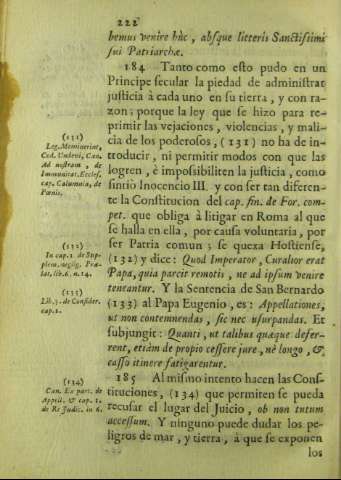 222
bemus venire hùc, absque litteris Sanctissimi
sui Patriarchæ.
184 Tanto como esto pudo en un
Principe secular la piedad de administrar
justicia à cada uno en su tierra, y con ra-
zon; porque la ley que se hizo para re-
primir las vejaciones, violencias, y mali-
cia de los poderosos, (131) no ha de in-
troducir, ni permitir modos con que las
logren, è impossibiliten la justicia, como
sintio Inocencio III. y con ser tan diferen-
te la Constitucion del cap. fin. de For. com-
pet. que obliga à litigar en Roma al que
se halla en ella, por causa voluntaria, por
ser Patria comun; se quexa Hostiense,
(132) y dice: Quod Imperator, Curalior erat
Papa, quia parcit remotis, ne ad ipsum venire
teneantur. Y la Sentencia de San Bernardo
(133) al Papa Eugenio, es: Appellationes,
ut non contemnendas, sic nec usurpandas. Et
subjungit: Quanti, ut talibus quæque defer-
rent, etiàm de propio cessere jure, nè longo, &
casso itinere fatigarentur.
185 Al mismo intento hacen las Cons-
tituciones, (134) que permiten se pueda
recusar el lugar del Juicio, ob non tutum
accessum. Y ninguno puede dudar los pe-
ligros de mar, y tierra, à que se exponen
los
(131)
Leg. Meminerint,
Cod. Undevi, Can.
Ad nostram, de
Immunitat. Eccles.
cap. Calumnia, de
Pœnis.
(132)
In cap. 1. de Sup-
plena. neglig. Præ-
lat. lib. 6. n. 14.
(133)
Lib. 3. de Consider.
cap. 1.
(134)
Can. Ex part. de
Appell. & cap. 1.
de Re Judic. in 6.